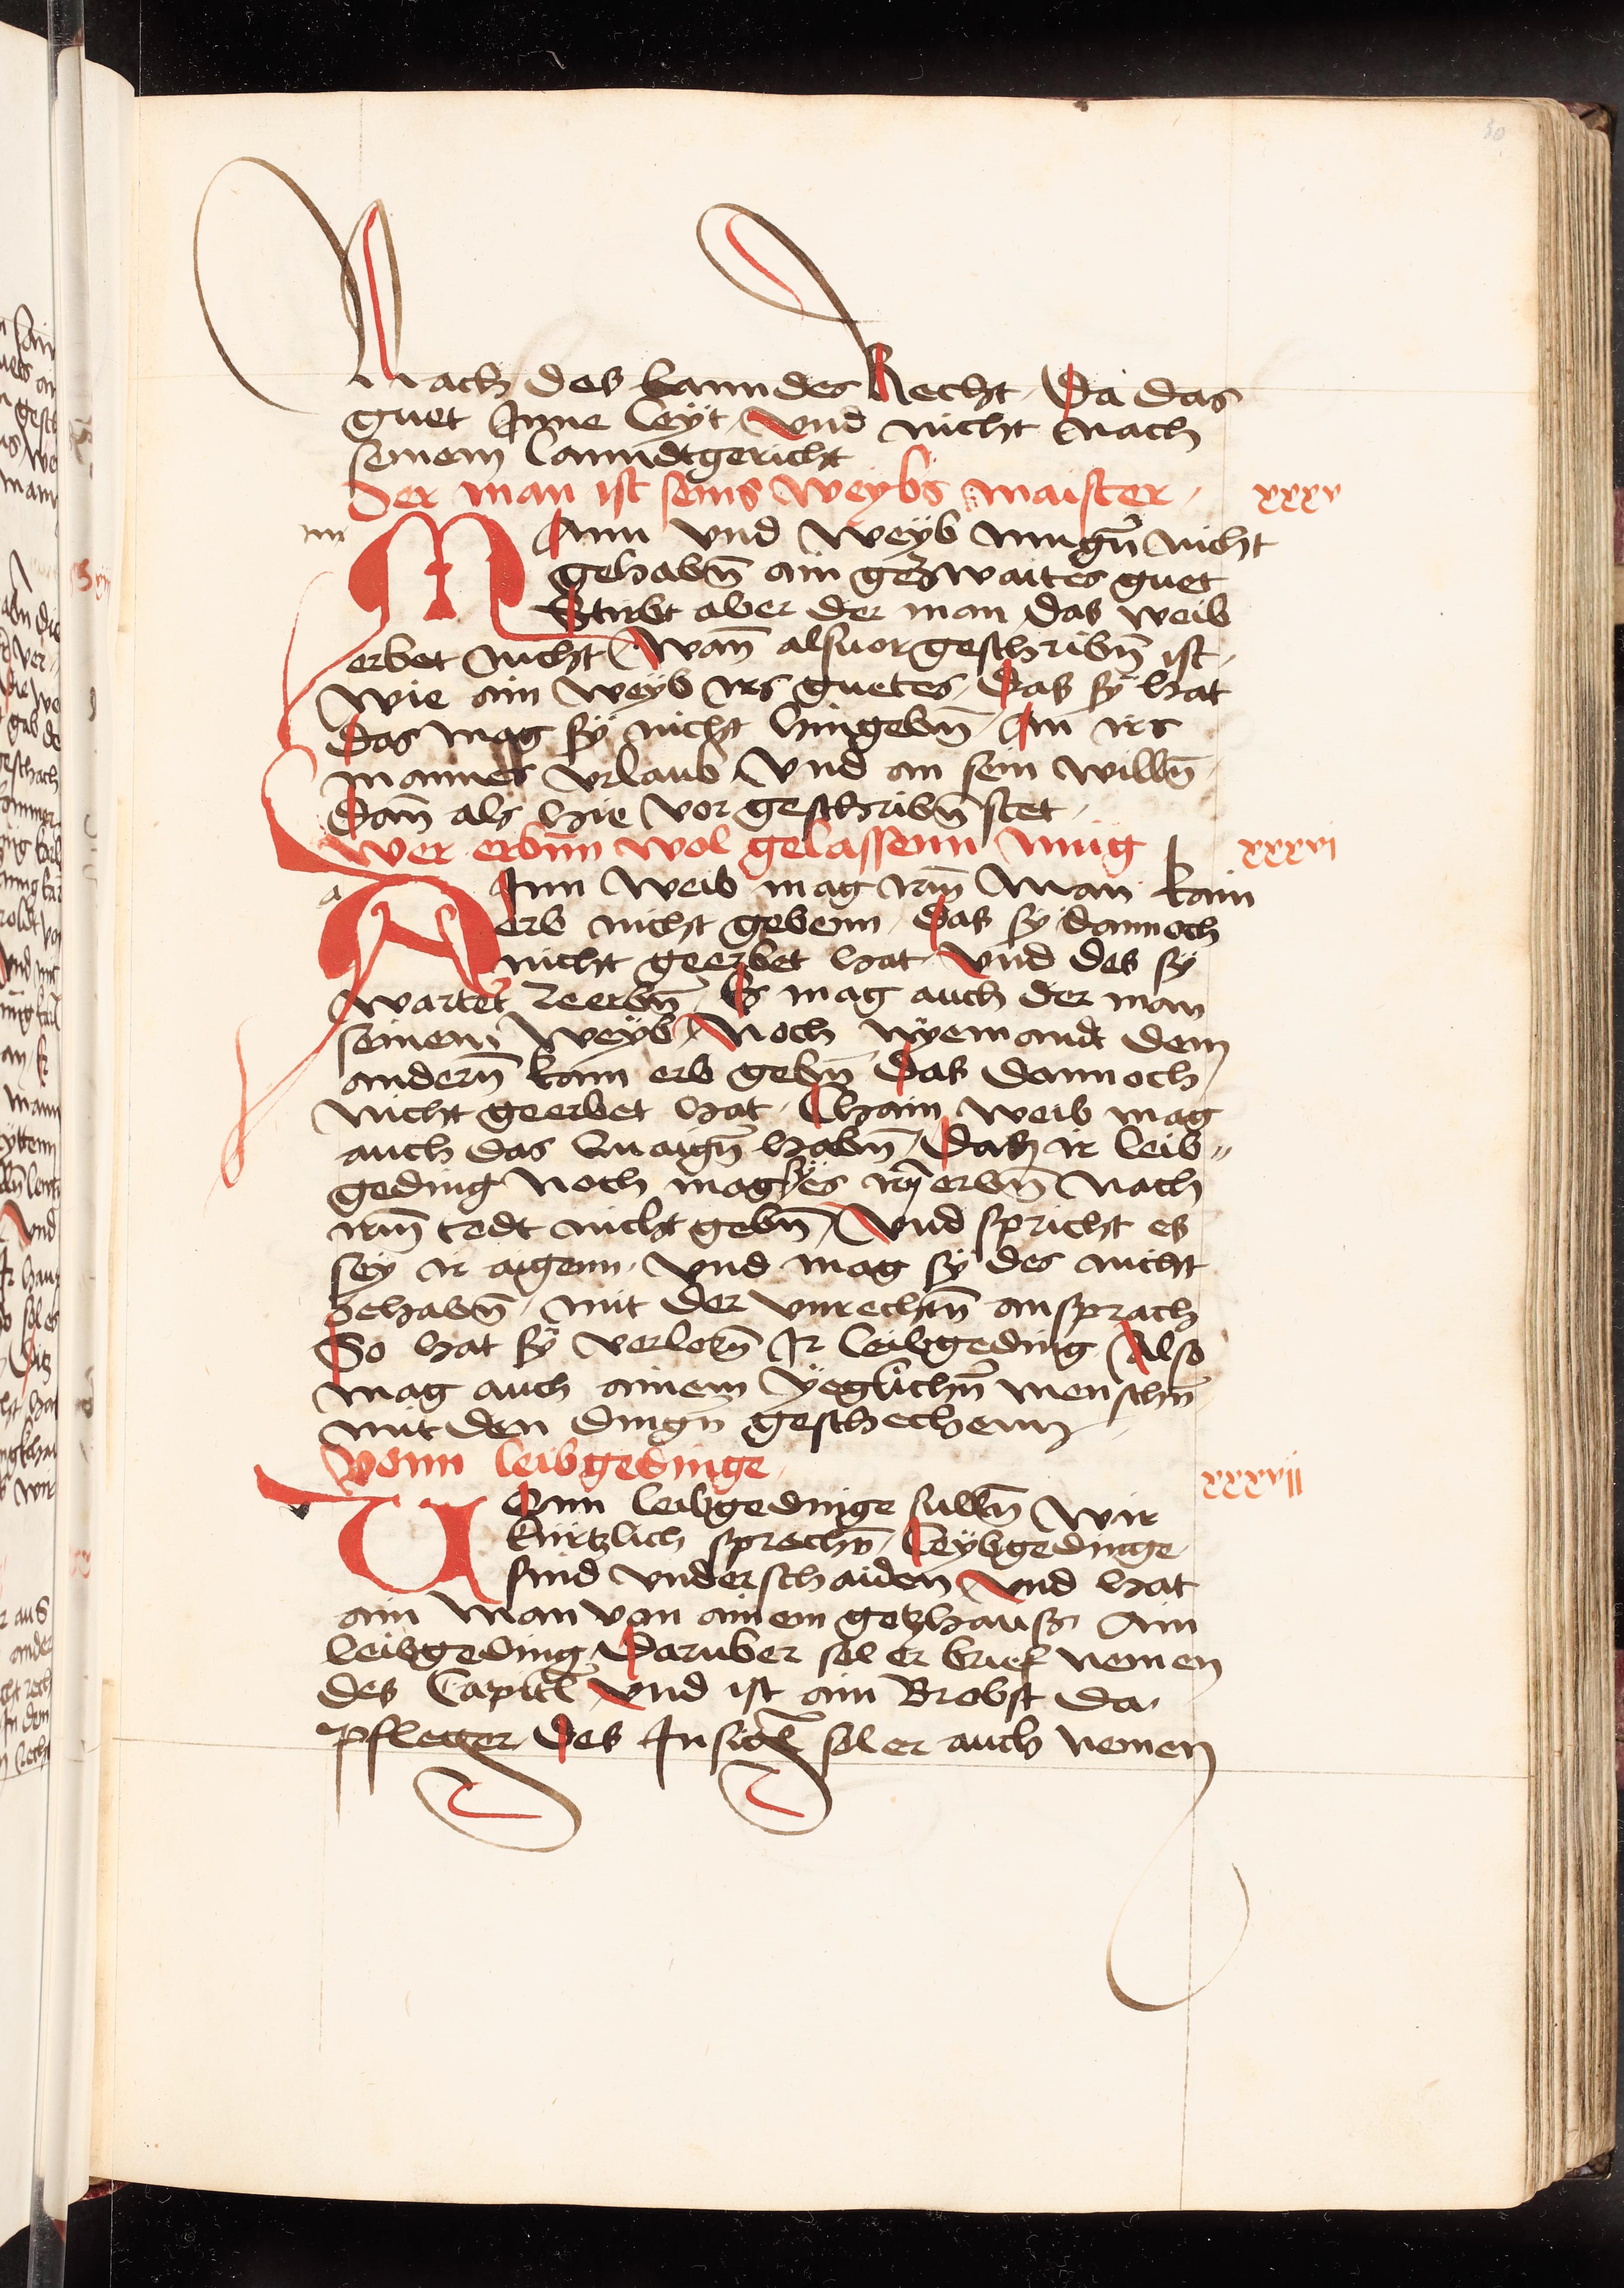 30
Nach des Lanndes Recht Da das
guet Inne leyt vnd nicht nach
seinem Lanndtgericht
Der man ist seins weybs maister xxxv
MAnn vnd weyb mugn̄ nicht
gehabn̄ ain gezwaites guet
Stirbt aber der man das weib
erbet nicht Wan̄ alsuor geschribn̄ ist
wie ain weyb irs guetes Das sy hat
das mag sy nicht hingebn̄ An irs
mannes vrlaub vnd an sein willn̄
Dan̄ als hie vor geschribn̄ stet
Wer erbnn wol gelassenn mug xxxvi
AInn weib mag irm̄ man kain
erb nicht gebenn Das sy dannoch
nicht geerbet hat vnd des sy
wartet zeerbn̄ Es mag auch der man
seinem weyb Noch nyemandt dem
andern̄ kain erb gebn̄ Das dannoch
nicht geerbet hat Chain weib mag
auch das Zu aign̄ habn̄ Das ir leib
geding Noch mag sy es irn̄ erbn̄ nach
irm̄ todt nicht gebn̄ Vnd spricht es
sey ir aigenn vnd mag sy des nicht
behabn̄ mit der vnrechtn̄ ansprach
So hat sy verlorn̄ Ir leibgeding Also
mag auch ainem yeglichn̄ menschn̄
mit den dingn̄ geschechenn
Vonn leibgedinge xxxvii
VOnn leibgedinge sulln̄ wir
kürtzlich sprechn̄ Leybgedinge
sind vnderschaiden vnd hat
ain man von ainem gotzhauss Ain
leibgeding Daruber sol er brief nemen
des Capitl vnd ist ain Brobst da
pfleger Des Insigl sol er auch nemen